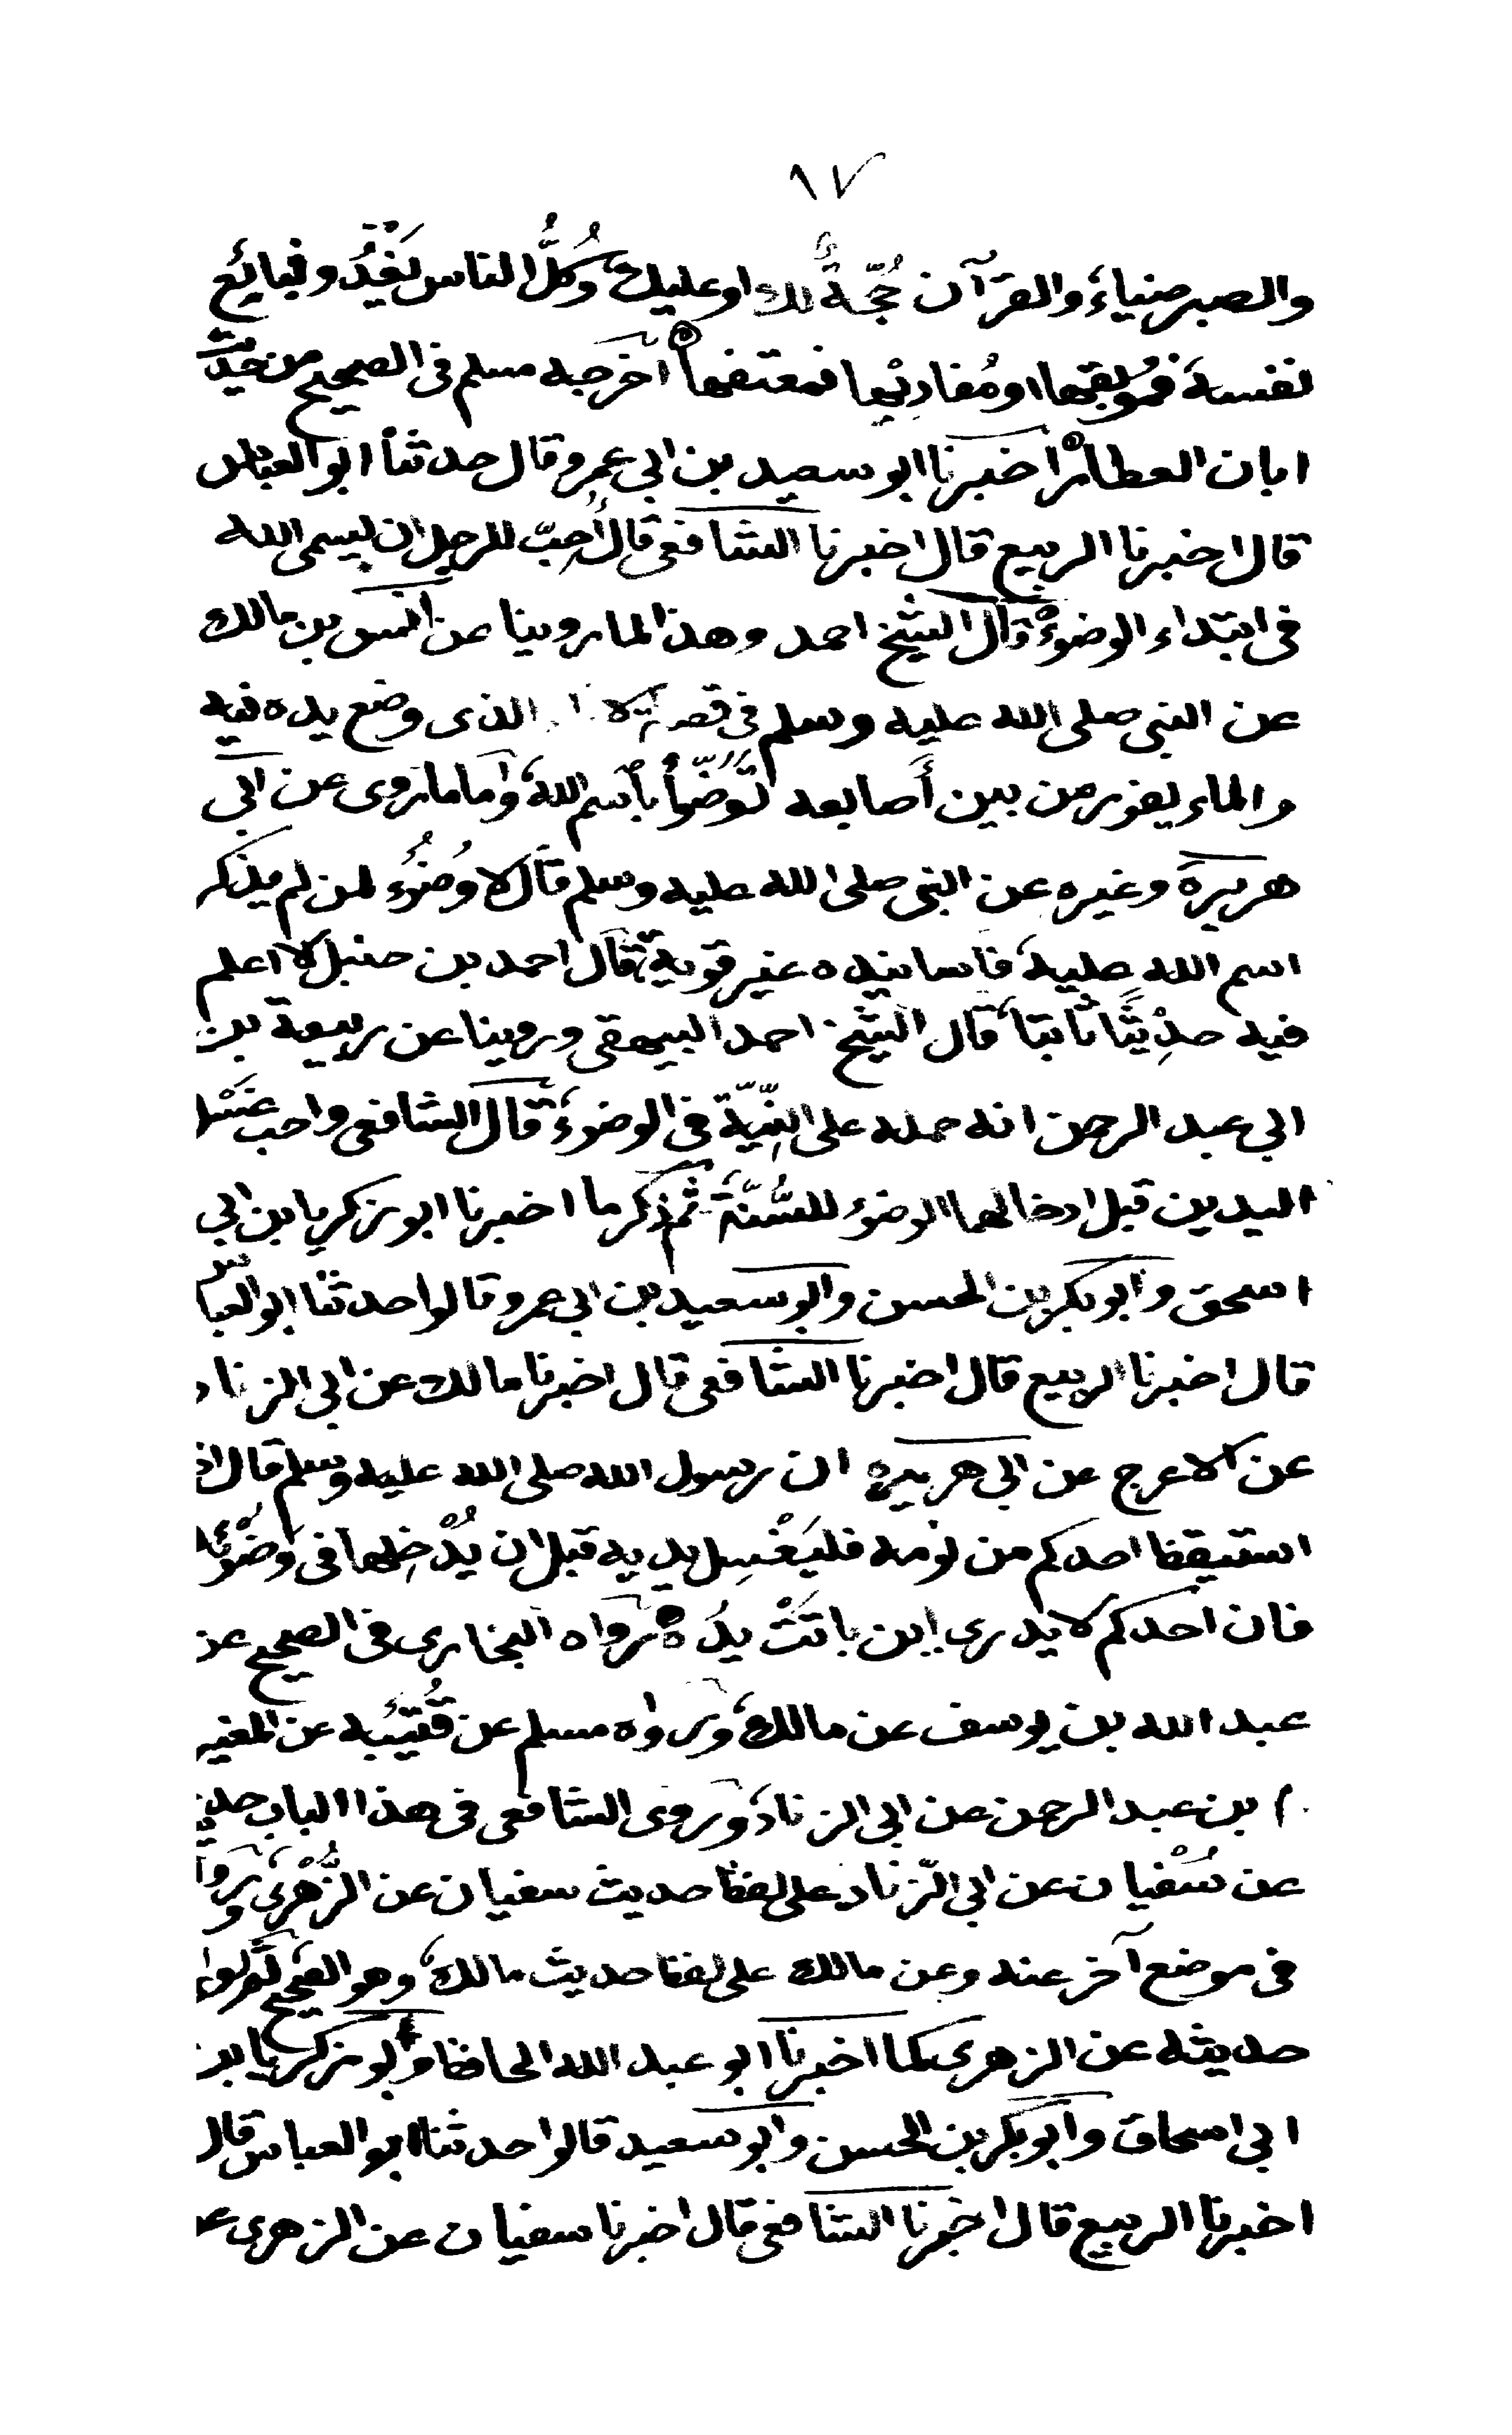 ١٧
والصبر ضياءٌ والقرآن حُجّةٌ لك او عليك وكُلُّ الناس يَغْدُو فبايعٌ
نفسه فمُوبِقها او مُفادِيها فمعتقها اخرجه مسلم فى الصحيح من حديث
ابان العطار اخبرنا ابو سعيد بن ابي عمرو قال حدثنا ابو العباس
قال اخبرنا الربيع قال اخبرنا الشافعى قال اُحِبّ للرجل ان يسمى الله
فى ابتداء الوضوء قال الشيخ احمد وهذا لما روينا عن انس بن مالك
عن النبى صلى الله عليه وسلم فى قصة الذى وضع يده فيه
والماء يفور من بين أصابعه تَوَضَّأُ بأسم الله وأما ما روى عن ابى
هريرة وغيره عن النبى صلى الله عليه وسلم قال لا وُضُوُء لمن لم يذكر
اسم الله عليه فاسانيده غير قوية قال احمد بن حنبل لا اعلم
فيه حدِيثًا ثابتا قال الشيخ احمد البيهقى وروينا عن ربيعة بن
ابي عبد الرحمن انه حمله على النِّيّة فى الوضوء قال الشافعى واحب غَسْل
اليدين قبل ادخالهما الوضوء للسُّنّة ثم ذكر ما اخبرنا ابو زكريا بن ابي
اسحق وابو بكر بن الحسن وابو سعيد بن ابي عمرو قالوا حدثنا ابو العباس
قال اخبرنا الربيع قال اخبرنا الشافعى قال اخبرنا مالك عن ابي الزناد
عن الاعرج عن ابي هريرة ان رسول الله صلى الله عليه وسلم قال اذ
استيقظ احدكم من نومه فليَغْسِل يديه قبل ان يُدْخِلهما فى وَضُوئه
فان احدكم لا يدرى اين باتَتْ يدُه رواه البخارى فى الصحيح عن
عبد الله بن يوسف عن مالك ورواه مسلم عن قُتَيْبه عن المغير
بن عبد الرحمن عن ابي الزناد وروى الشافعى فى هذا الباب حديث
عن سُفْيان عن ابي الزّناد على لفظ حديث سفيان عن الزُّهْرِى ورواه
فى موضع آخر عنه وعن مالك على لفظ حديث مالك وهو الصحيح
حديثه عن الزهرى كما اخبرنا ابو عبد الله الحافظ وابو زكريا بن
ابي اسحاق وابو بكر بن الحسن وابو سعيد قالوا حدثنا ابو العباس قال
اخبرنا الربيع قال اخبرنا الشافعى قال اخبرنا سفيان عن الزهرى عن